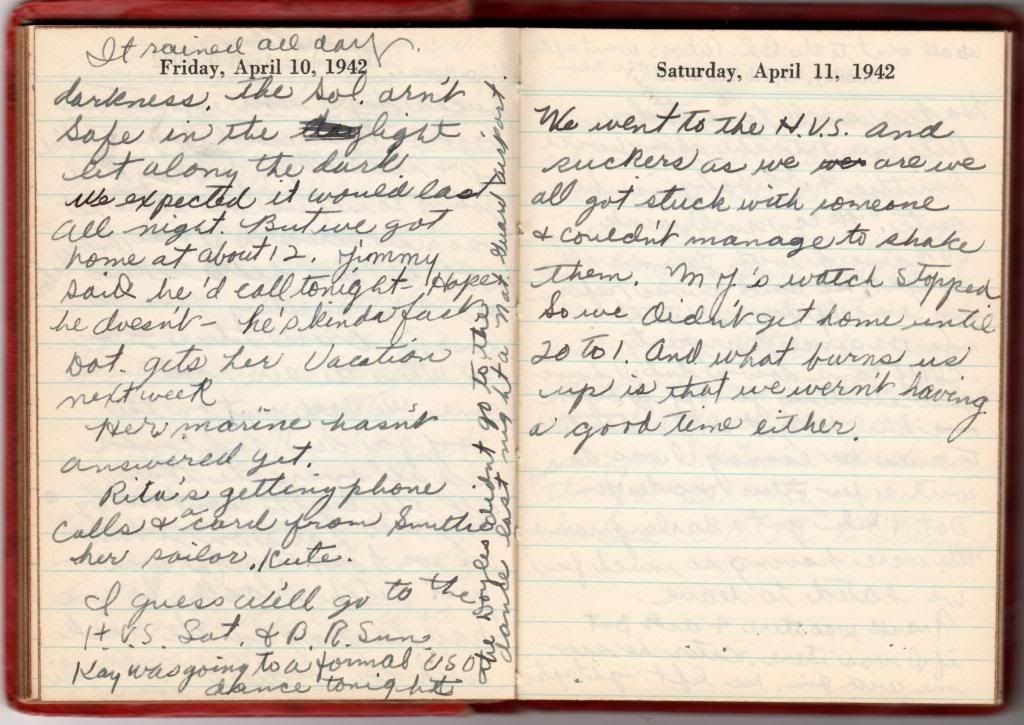 It rained all day.
Friday, April 10, 1942
darkness. the Sol. arn't
safe in the light
let along the dark.
We expected it would last
all night. But we got
home at about 12. Jimmy
said he'd call tonight - Hope
he doesn't - he's kinda fast
Dot. gets her Vacation
next week
Her marine hasn't
answered yet.
Rita's getting phone
calls & a card from Smithe
her sailor. Kute.
I guess we'll go to the
H.V.S. Sat. & B.R. Sun.
Kay was going to a formal USO
dance tonight
the Doyles didnt go to the
dance last night a Nat Guard airport
Saturday, April 11, 1942
We went to the H.V.S. and
suckers as we wer are we
all got stuck with someone
& couldn't manage to shake
them. M J's watch stopped
So we didn't get home until
20 to 1. And what burns us
up is that we wern't having
a good time either.